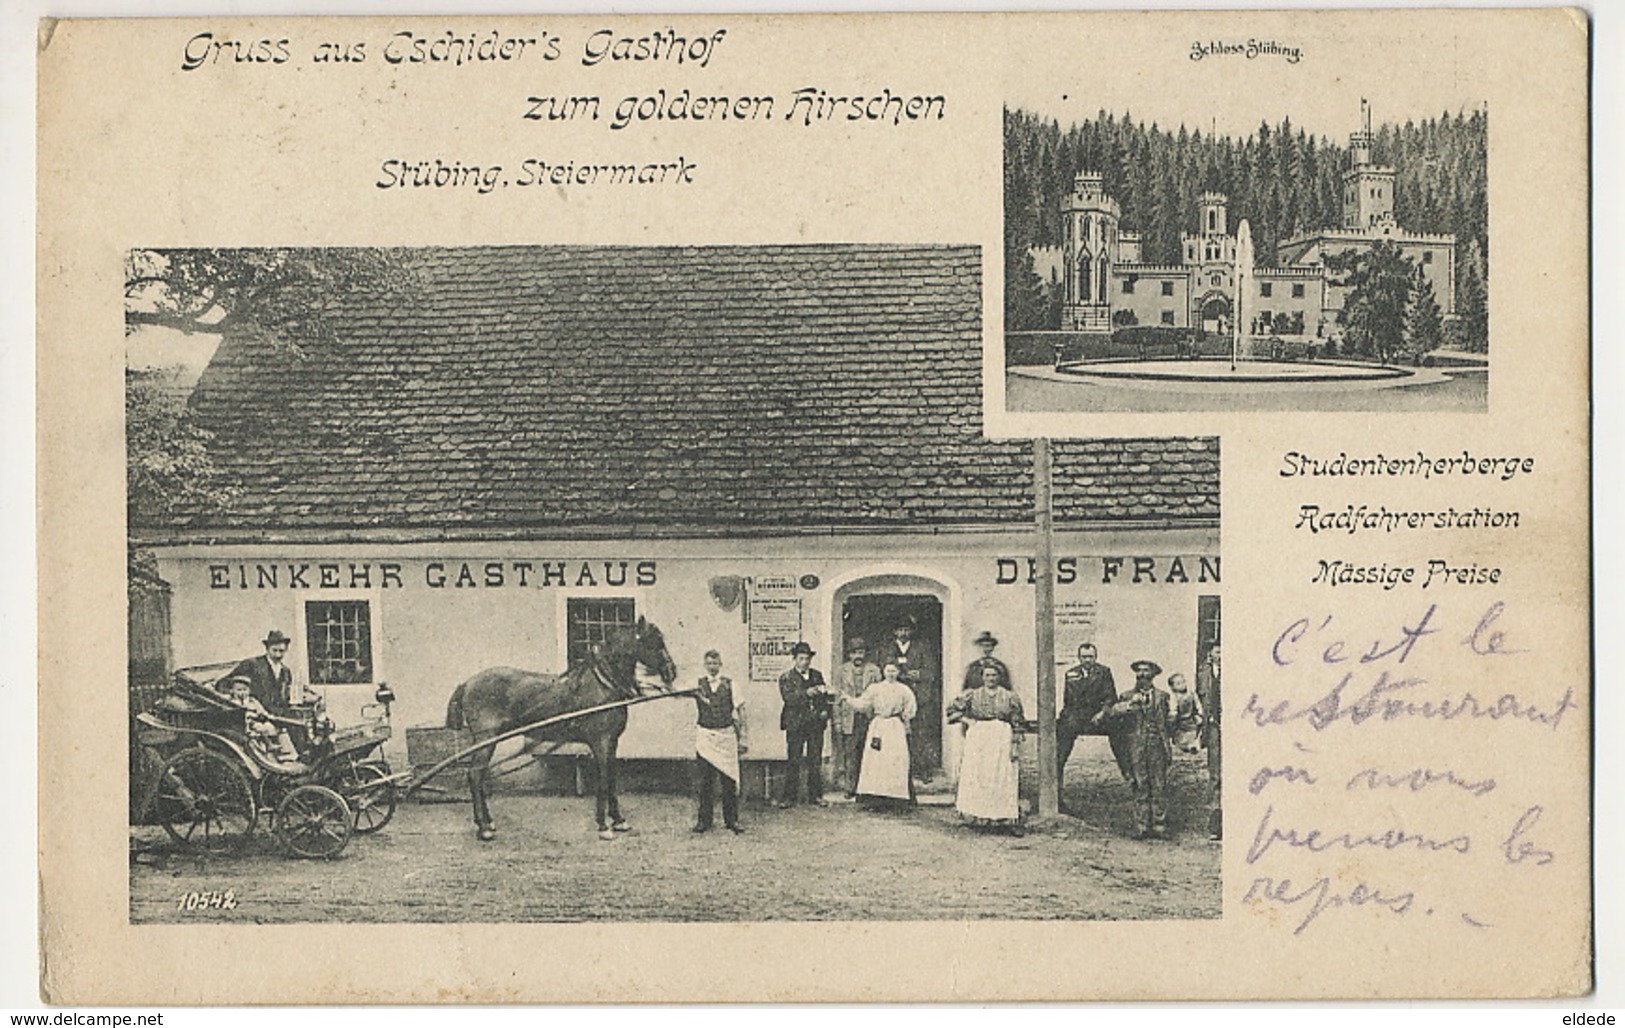 Gruss aus Eschider's Gasthof
zum goldenen Hirschen
Stübing, Steiermark
Schloss Stübing.
EINKEHR GASTHAUS
DES FRAN
2
KOGLER
Studentenherberge
Radfahrerstation
Mässige Preise
c'est le
restaurant
où nous
prenons les
repas. _
10542
www.delcampe.net
eldede